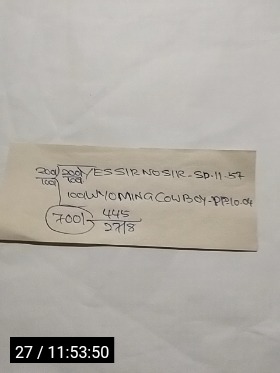 200/ 200/ YESSIRNOSIR-SD-11-57
100/ 700/
100/ WYOMINGCOWBOY-PP-10-04
700/ 445
27/8
27 / 11:53:50